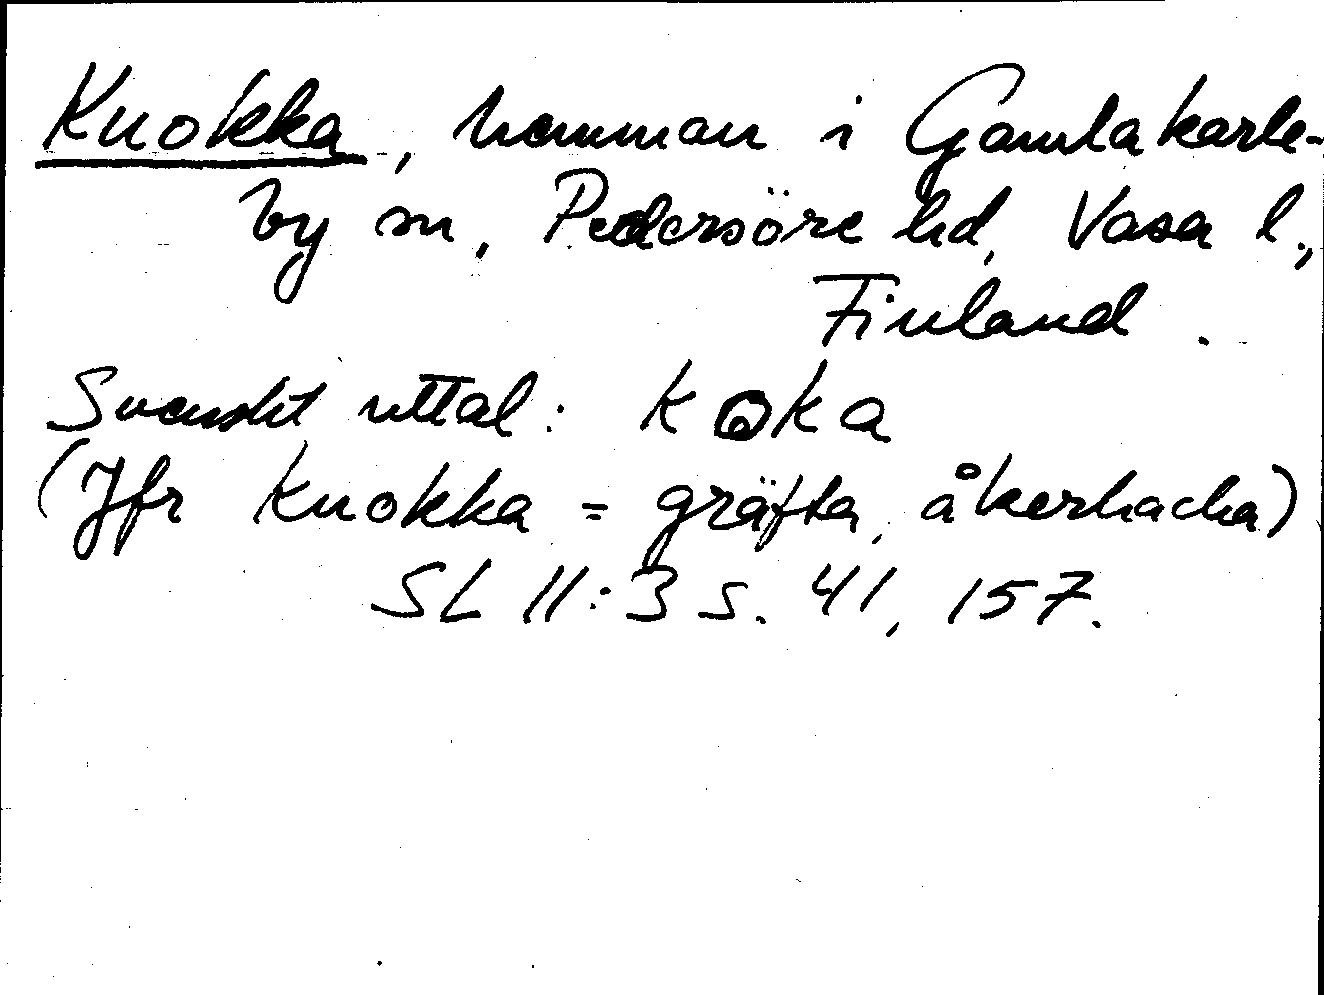 Kuokka, hemman i Gamlakarle-
by sn, Pedersöre hd, Vasa l.,
Finland.
Svenskt uttal: koka
(Jfr kuokka = gräfta, åkerhacka)
SL II:3 s. 41, 157.